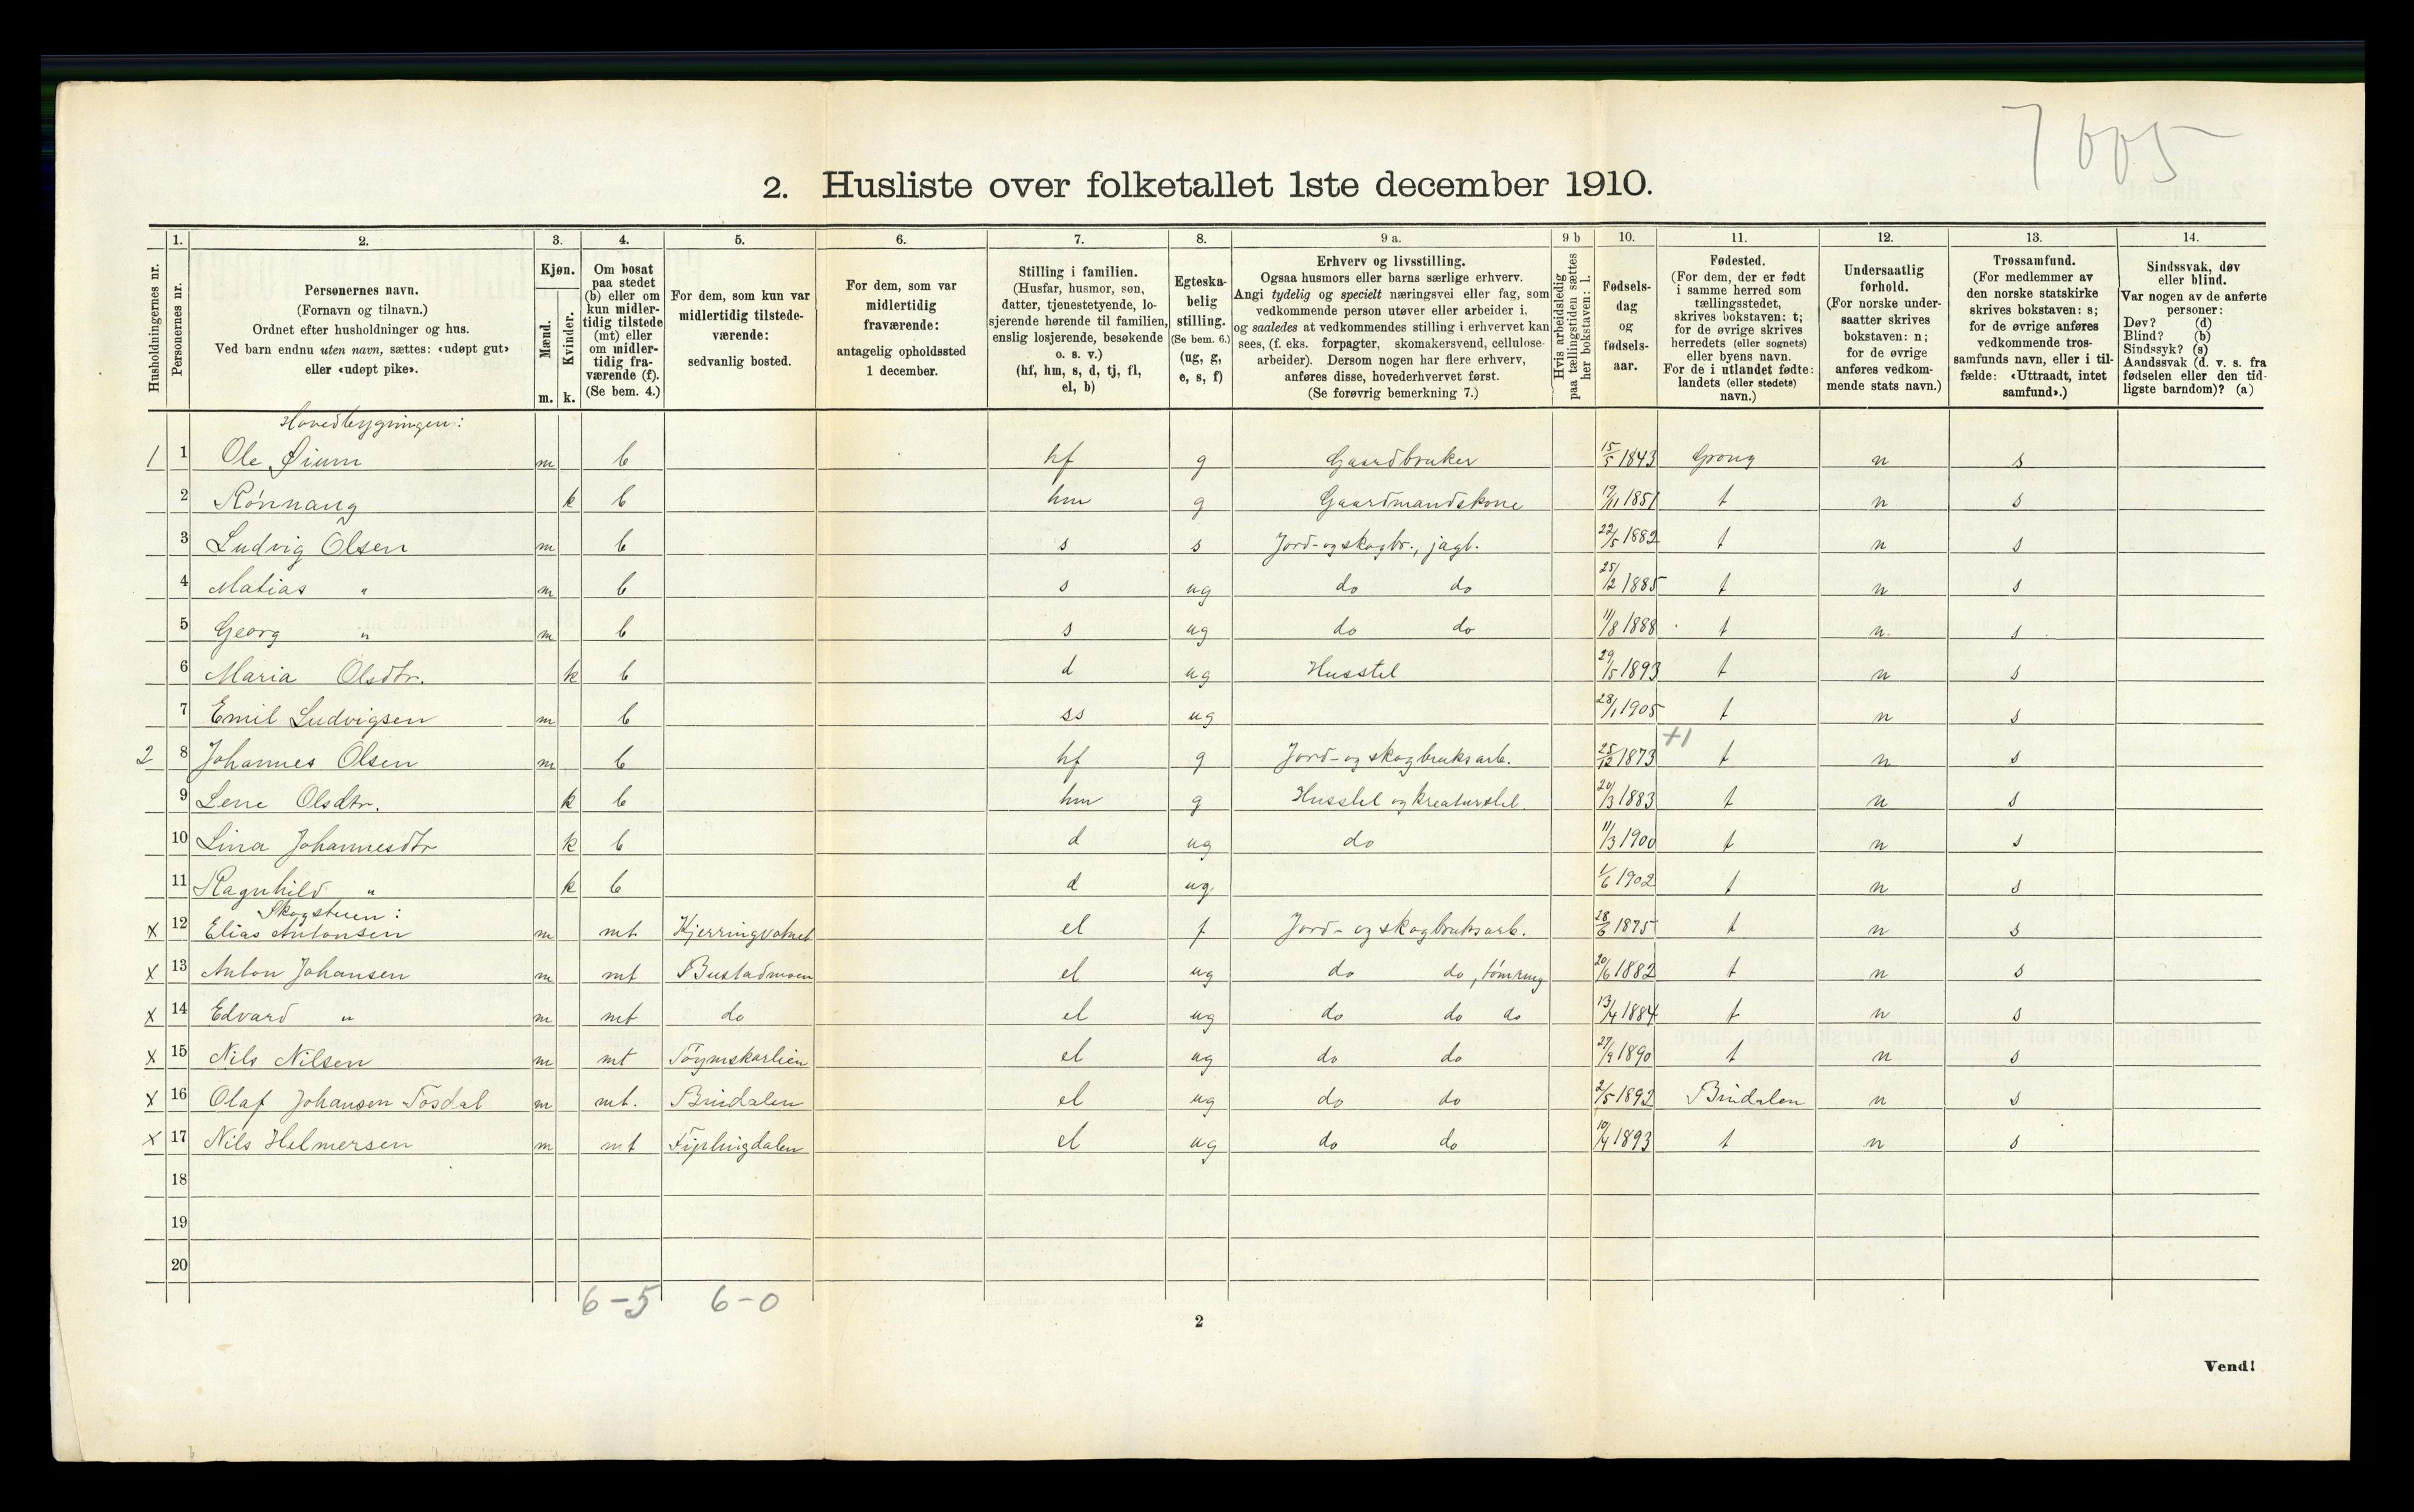 7 005
2. Husliste over folketallet 1ste december 1910.
Husholdningernes nr.
1. Personernes nr.
2. Personernes navn. (Fornavn og tilnavn.) Ordnet efter husholdninger og hus. Ved barn endnu uten navn, sættes: «udøpt gut» eller «udøpt pike».
3. Kjøn. Mænd. m. Kvinder. k.
4. Om bosat paa stedet (b) eller om kun midlertidig tilstede (mt) eller om midlertidig fraværende (f). (Se bem. 4.)
5. For dem, som kun var midlertidig tilstedeværende: sedvanlig bosted.
6. For dem, som var midlertidig fraværende: antagelig opholdssted 1 december.
7. Stilling i familien. (Husfar, husmor, søn, datter, tjenestetyende, losjerende hørende til familien, enslig losjerende, besøkende o. s. v.) (hf, hm, s, d, tj, fl, el, b)
8. Egteskabelig stilling. (Se bem. 6.) (ug, g, e, s, f)
9 a. Erhverv og livsstilling. Ogsaa husmors eller barns særlige erhverv. Angi tydelig og specielt næringsvei eller fag, som vedkommende person utøver eller arbeider i, og saaledes at vedkommendes stilling i erhvervet kan sees, (f. eks. forpagter, skomakersvend, cellulosearbeider). Dersom nogen har flere erhverv, anføres disse, hovederhvervet først. (Se forøvrig bemerkning 7.)
9 b Hvis arbeidsledig paa tællingstiden sættes her bokstaven: l.
10. Fødselsdag og fødselsaar.
11. Fødested. (For dem, der er født i samme herred som tællingsstedet, skrives bokstaven: t; for de øvrige skrives herredets (eller sognets) eller byens navn. For de i utlandet fødte: landets (eller stedets) navn.)
12. Undersaatlig forhold. (For norske undersaatter skrives bokstaven: n; for de øvrige anføres vedkommende stats navn.)
13. Trossamfund. (For medlemmer av den norske statskirke skrives bokstaven: s; for de øvrige anføres vedkommende trossamfunds navn, eller i tilfælde: «Uttraadt, intet samfund».)
14. Sindssvak, døv eller blind. Var nogen av de anførte personer: Døv? (d) Blind? (b) Sindssyk? (s) Aandssvak (d. v. s. fra fødselen eller den tidligste barndom)? (a)
Hovedbygningen:
1 1 Ole Øium m b hf g Gaardbruker 15/5 1843 Grong n s
2 Rönnaug k b hm g Gaardmandskone 19/11 1851 t n s
3 Ludvig Olsen m b s s Jord- og skogbr., jagt. 22/5 1882 t n s
4 Matias " m b s ug do do 25/2 1885 t n s
5 Georg " m b s ug do do 11/8 1888 t n s
6 Maria Olsdtr. k b d ug Husstel 29/5 1893 t n s
7 Emil Ludvigsen m b ss ug 28/1 1905 t n s
+1
2 8 Johannes Olsen m b hf g Jord- og skogbruksarb. 25/12 1873 t n s
9 Lene Olsdtr. k b hm g Husstel og kreaturstel. 20/3 1883 t n s
10 Lina Johannesdtr k b d ug do 11/3 1900 t n s
11 Ragnhild " k b d ug 1/6 1902 t n s
Skogstuen:
x 12 Elias Antonsen m mt Kjerringvatnet el f Jord- og skogbruksarb. 28/6 1875 t n s
x 13 Anton Johansen m mt Bustadmoen el ug do do, tømring 20/6 1882 t n s
x 14 Edvard " m mt do el ug do do do 13/4 1884 t n s
x 15 Nils Nilsen m mt el ug do do 27/9 1890 t n s
x 16 Olaf Johansen Tosdal m mt. Bindalen el ug do do 2/5 1892 Bindalen n s
x 17 Nils Helmersen m mt Fiplingdalen el ug do do 10/4 1893 t n s
18
19
20
6-5 6-0
2
Vend!